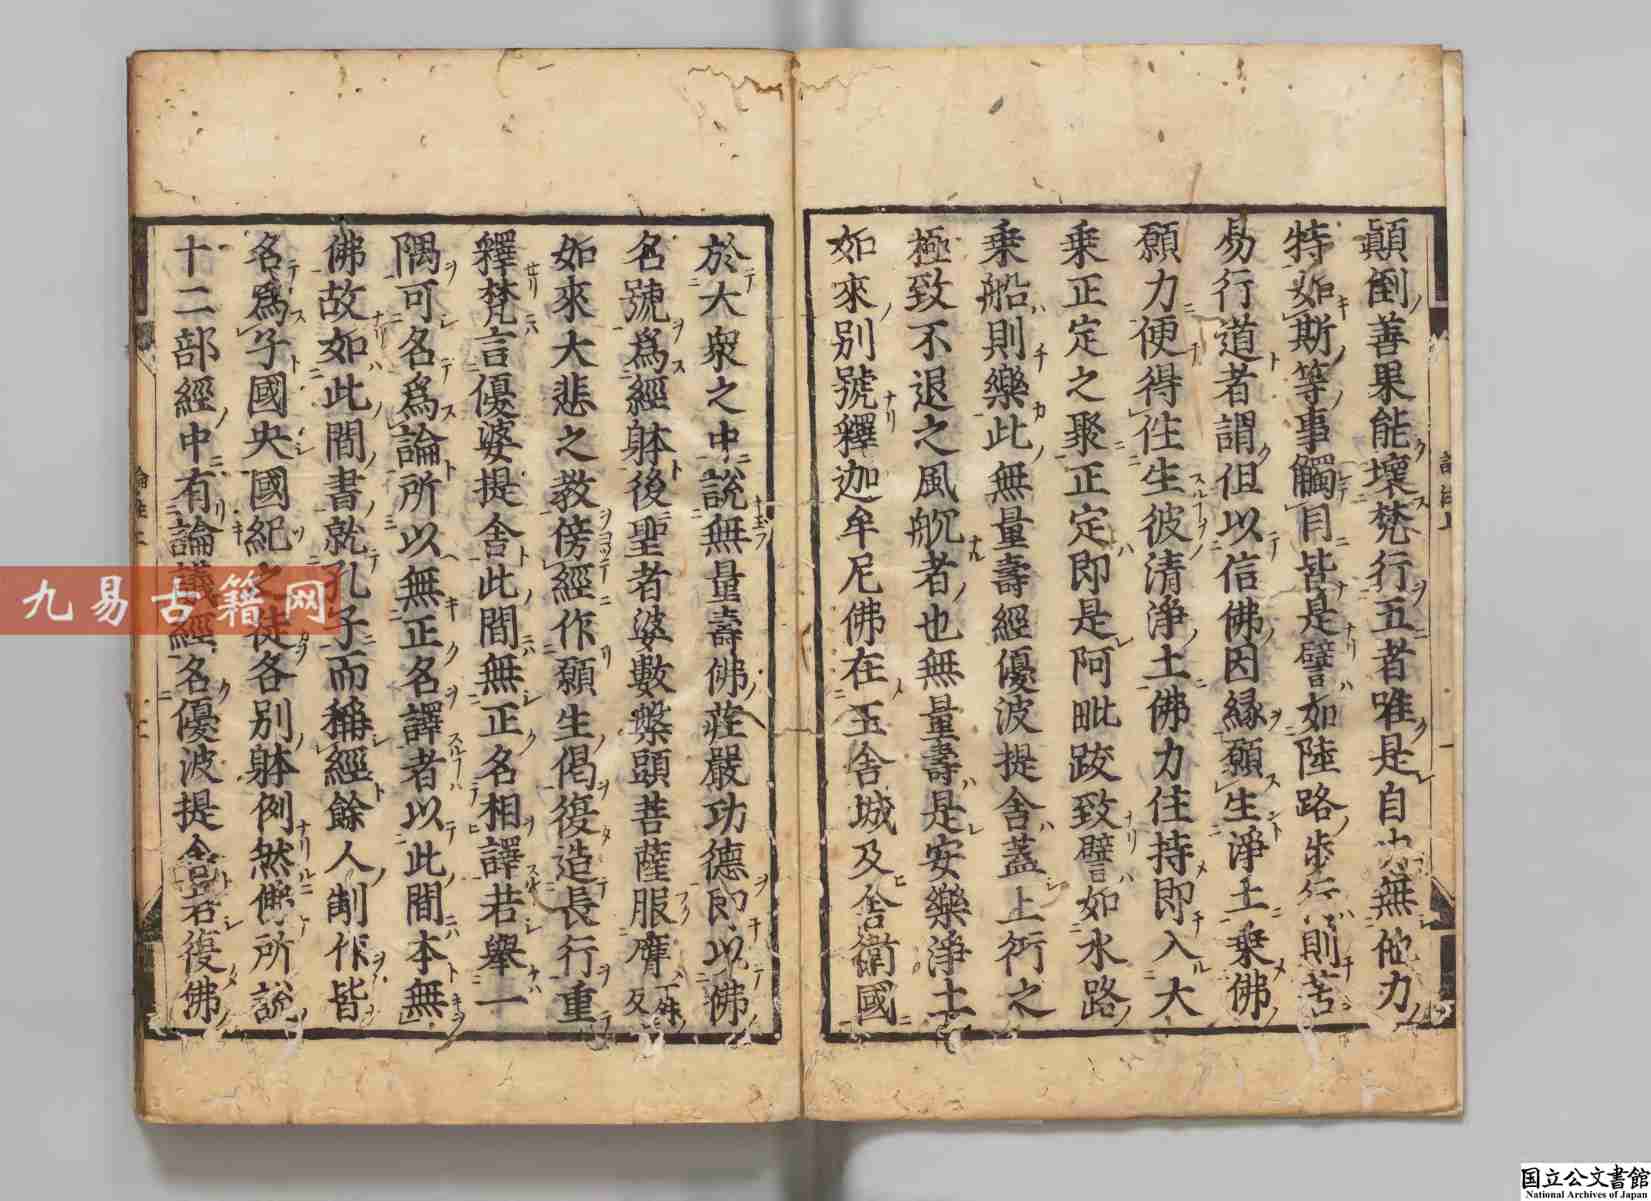 顚倒善果能壞梵行五者唯是自力無他力
特如斯等事觸目皆是譬如陸路步行則苦
易行道者謂但以信佛因緣願生淨土乘佛
願力便得徃生彼清淨土佛力住持即入大
乗正定之聚正定即是阿毗跋致譬如水路
乗船則樂此無量壽經優波提舍蓋上衍之
極致不退之風航者也無量壽是安樂淨土
如來別號釋迦牟尼佛在王舍城及舍衛國
於大衆之中說無量壽佛莊嚴功德即以佛
名號爲經躰後聖者婆數槃頭菩薩服膺
如來大悲之教傍經作願生偈復造長行重
釋梵言優婆提舍此間無正名相譯若舉一
隅可名爲論所以無正名譯者以此間本無
佛故如此間書就孔子而稱經餘人制作皆
名爲子國史國紀之徒各別躰例然佛所說
十二部經中有論議經名優波提舍若復佛
九易古籍网
国立公文書館
National Archives of Japan